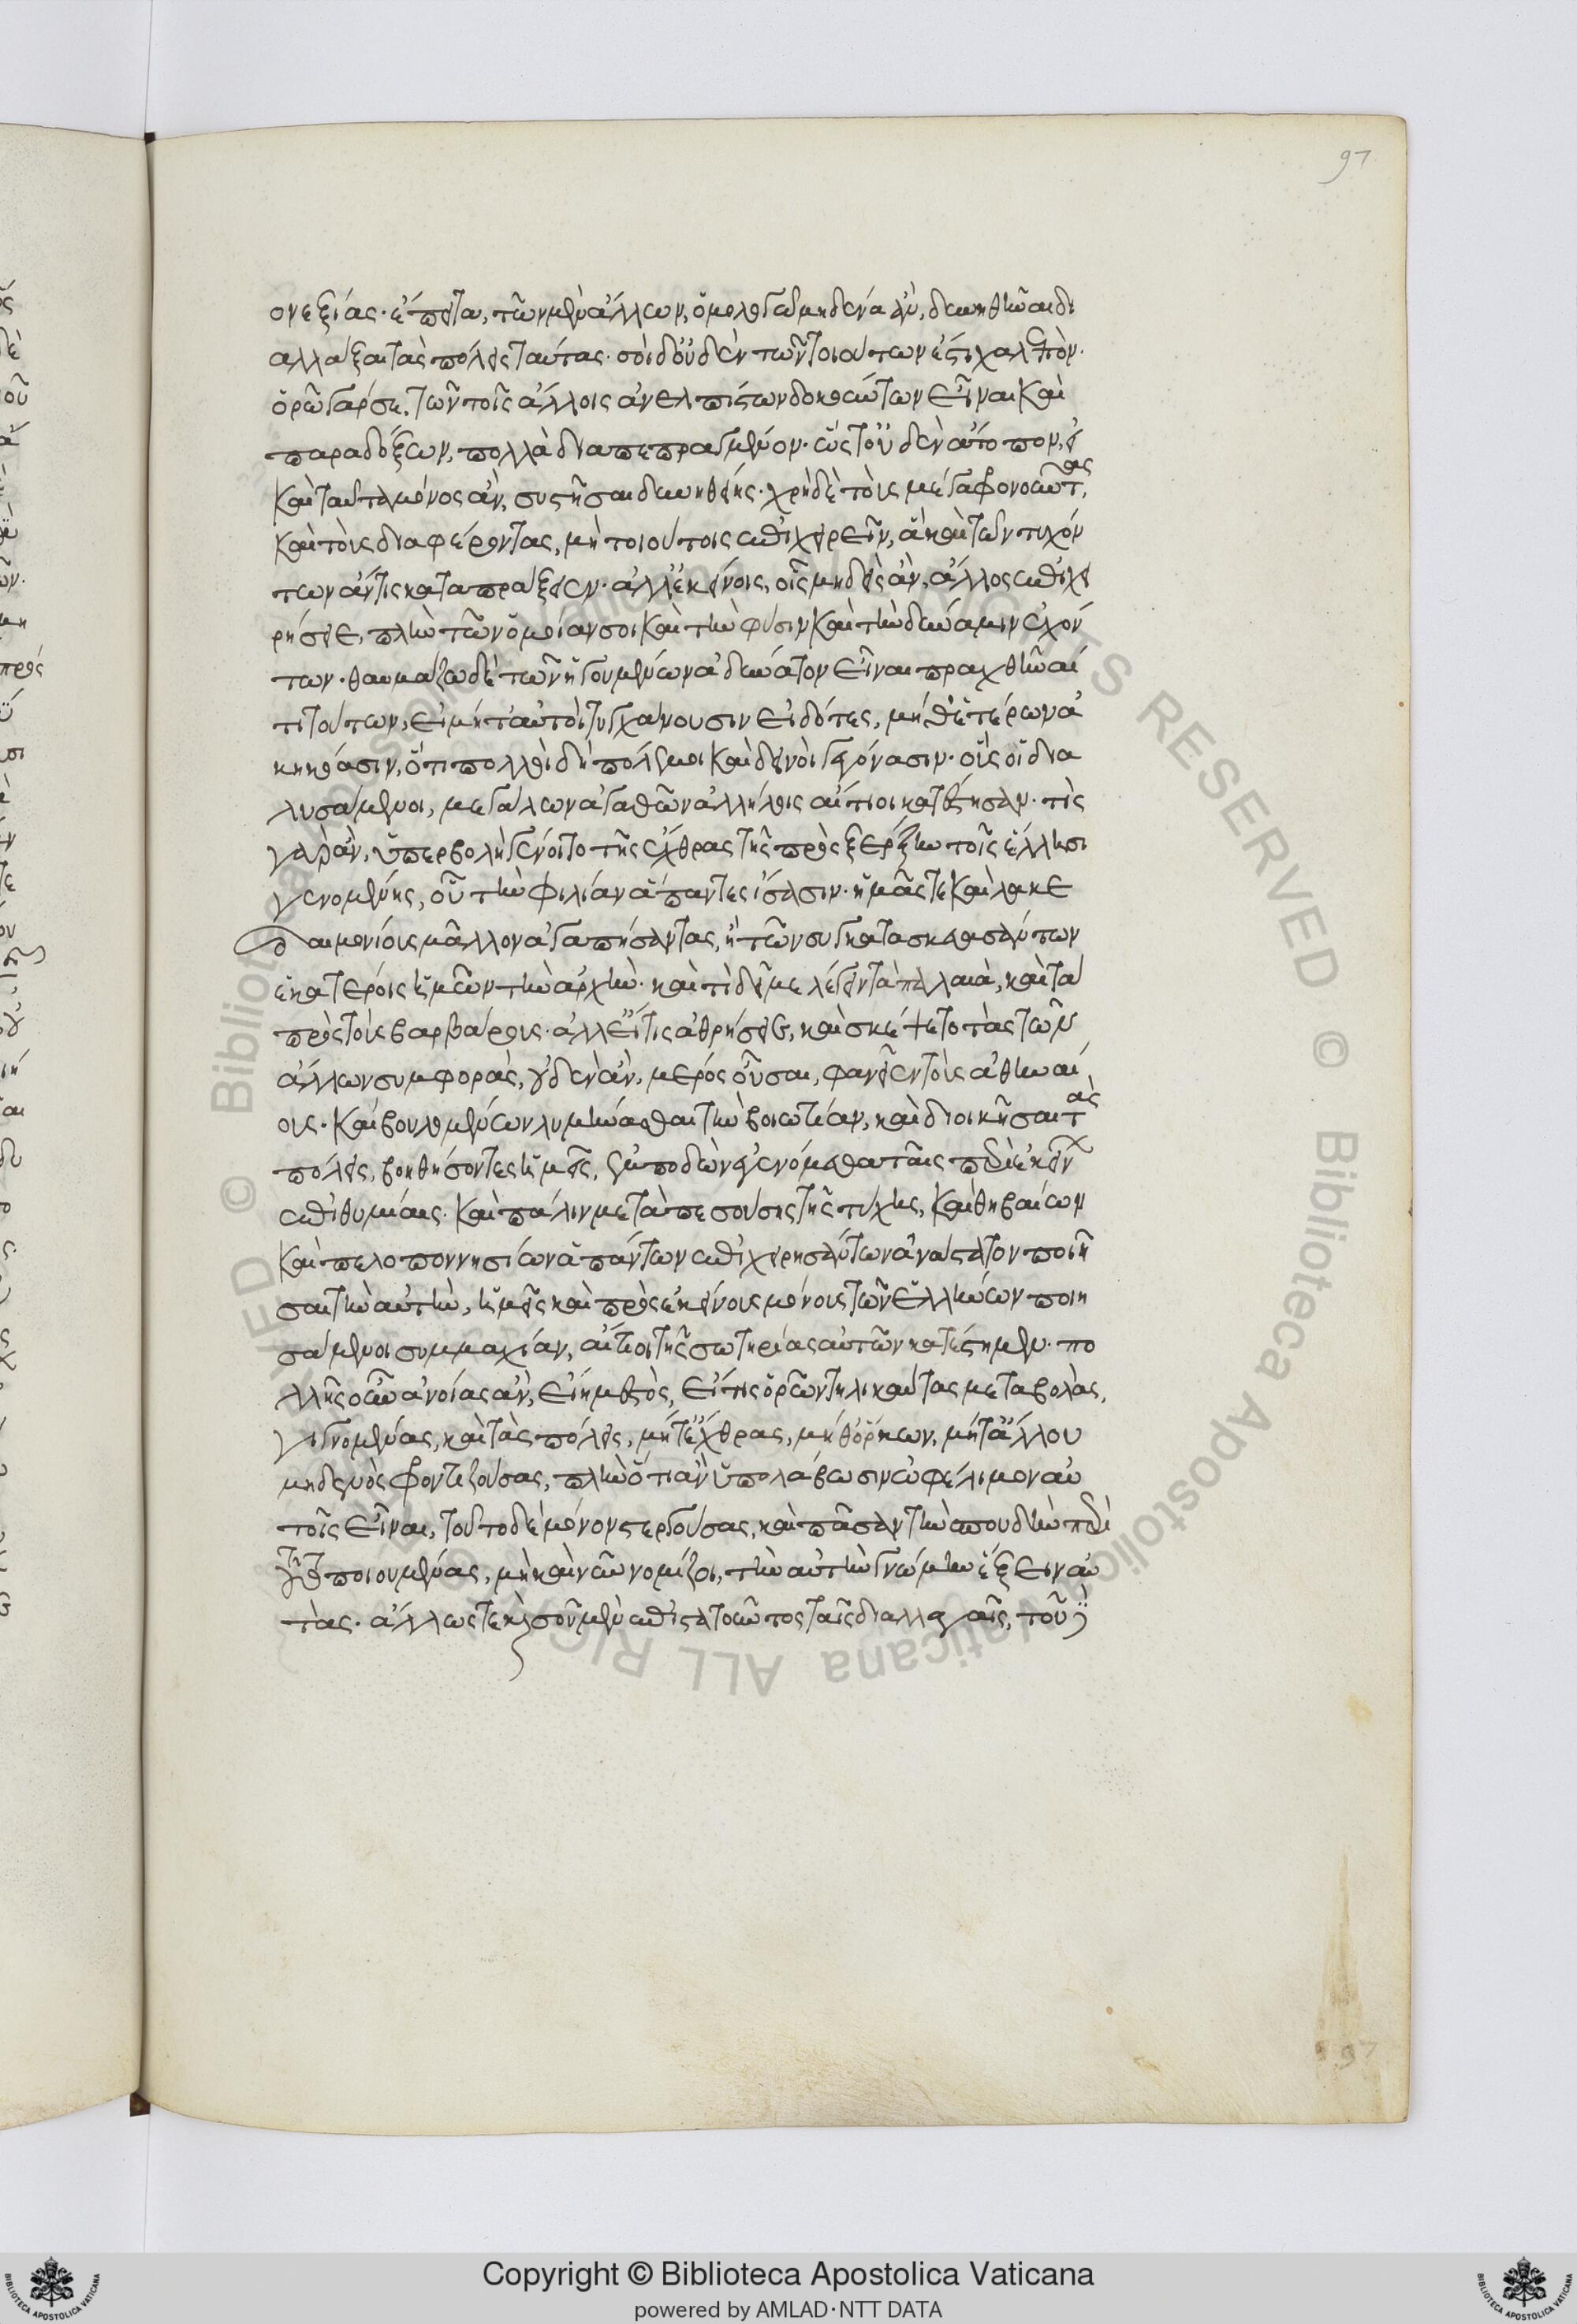 97
ονεξίας· ἔπειτα, τῶν μὲν ἄλλων, ὁμολογῶ μηδένα ἂν, δυνηθῆναι δι
αλλάξαι τὰς πόλεις ταύτας· σοὶ δ' οὐδὲν τῶν τοιούτων ἐστὶ χαλεπόν·
ὁρῶ γάρ σε, τῶν τοῖς ἄλλοις ἀνελπίστων δοκούντων εἶναι καὶ
παραδόξων, πολλὰ διαπεπραγμένον· ὥστ' οὐδὲν ἄτοπον, εἰ
καὶ ταῦτα μόνος ἂν, συστῆσαι δυνηθείης· χρὴ δὲ τοὺς μέγα φρονοῦντας,
καὶ τοὺς διαφέροντας, μὴ τοιούτοις ἐπιχειρεῖν, ἃ καὶ τῶν τυχόν
των ἄν τις καταπράξειεν· ἀλλ' ἐκείνοις, οἷς μηδεὶς ἂν, ἄλλος ἐπιχει
ρήσειε, πλὴν τῶν ὁμοίαν σοι καὶ τὴν φύσιν καὶ τὴν δύναμιν ἐχόν
των· θαυμάζω δὲ τῶν ἡγουμένων ἀδύνατον εἶναι πραχθῆναί
τι τούτων, εἰ μήτ' αὐτοὶ τυγχάνουσιν εἰδότες, μήθ' ἑτέρων ἀ
κηκόασιν, ὅτι πολλοὶ δὴ πόλεμοι καὶ δεινοὶ γεγόνασιν· οὓς οἱ δια
λυσάμενοι, μεγάλων ἀγαθῶν ἀλλήλοις αἴτιοι κατέστησαν· τίς
γὰρ ἂν, ὑπερβολὴ γένοιτο τῆς ἔχθρας τῆς πρὸς ξέρξην τοῖς ἕλλησι
γενομένης, οὗ τὴν φιλίαν ἅπαντες ἴσασιν· ἡμᾶς τε καὶ λακε
δαιμονίους μᾶλλον ἀγαπήσαντας, ἢ τῶν συγκατασκευασάντων
ἑκατέροις ἡμῶν τὴν ἀρχήν· καὶ τί δεῖ με λέγειν τὰ παλαιὰ, καὶ τὰ
πρὸς τοὺς βαρβάρους· ἀλλ' εἴ τις ἀθρήσειε, καὶ σκέψαιτο τὰς τῶν
ἄλλων συμφορὰς, οὐδὲν ἂν, μέρος οὖσαι, φανεῖεν τοὺς ἀθηναί
ους· καὶ βουλομένων λυμήνασθαι τὴν βοιωτίαν, καὶ διοικῆσαι τὰς
πόλεις, βοηθήσοντες ἡμεῖς, ἐμποδὼν ἐγενόμεθα ταῖς περὶ ἐκείνων
ἐπιθυμίαις· καὶ πάλιν μεταπεσούσης τῆς τύχης, καὶ θηβαίων
καὶ πελοποννησίων ἁπάντων ἐπιχειρησάντων ἀνάστατον ποιῆ
σαι τὴν αὐτὴν, ἡμεῖς καὶ πρὸς ἐκείνους μόνους τῶν ἑλλήνων ποιη
σάμενοι συμμαχίαν, αἴτιοι τῆς σωτηρίας αὐτῶν κατέστημεν· πο
λλῆς οὖν ἀνοίας ἂν, εἴη μεστὸς, εἴ τις ὁρῶν τηλικαύτας μεταβολὰς,
γιγνομένας, καὶ τὰς πόλεις, μήτ' ἔχθρας, μήθ' ὅρκων, μήτ' ἄλλου
μηδενὸς φροντιζούσας, πλὴν ὅτι ἂν ὑπολάβωσιν ὠφέλιμον αὑ
τοῖς εἶναι, τοῦτο δὲ μόνον στεργούσας, καὶ πᾶσαν τὴν σπουδὴν περὶ
τούτου ποιουμένας, μὴ καὶ νῦν νομίζοι, τὴν αὐτὴν γνώμην ἕξειν αὐ
τάς· ἄλλως τε καὶ σοῦ μὲν ἐπιστατοῦντος ταῖς διαλλαγαῖς, τοῦ
Copyright © Biblioteca Apostolica Vaticana
powered by AMLAD·NTT DATA